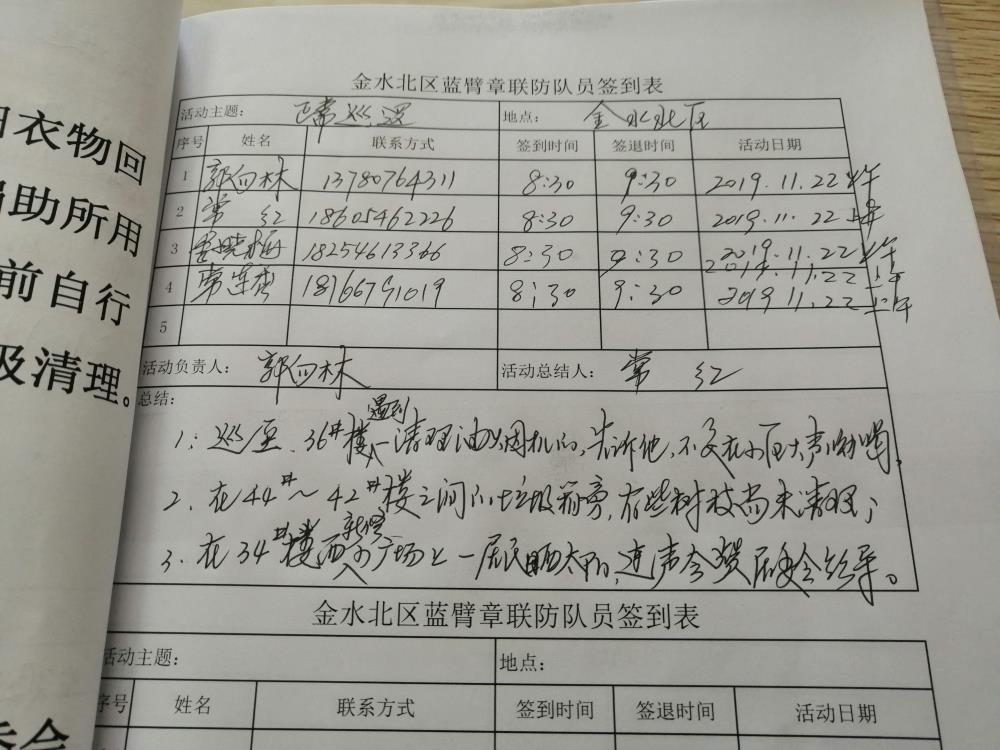 衣物回
助所用
前自行
及清理。
金水北区蓝臂章联防队员签到表
活动主题: 正常巡逻 地点: 金水北区
序号 姓名 联系方式 签到时间 签退时间 活动日期
1 郭向林 13780764311 8:30 9:30 2019.11.22上午
2 常红 18605462226 8:30 9:30 2019.11.22上午
3 晓梅 18254613366 8:30 9:30 2019.11.22上午
2019.11.22上午
4 常连 18766791019 8:30 9:30 2019 11.22上午
5
活动负责人: 郭向林 活动总结人: 常红
总结:
1: 巡区.36#楼遇到一清理油烟机的,告诉他,不要在小区大声吆喝。
2. 在44#~42#楼之间的垃圾箱旁,有些树枝尚未清理;
3. 在34#楼西新增的广场上一居民晒太阳,
金水北区蓝臂章联防队员签到表
活动主题: 地点:
序号 姓名 联系方式 签到时间 签退时间 活动日期